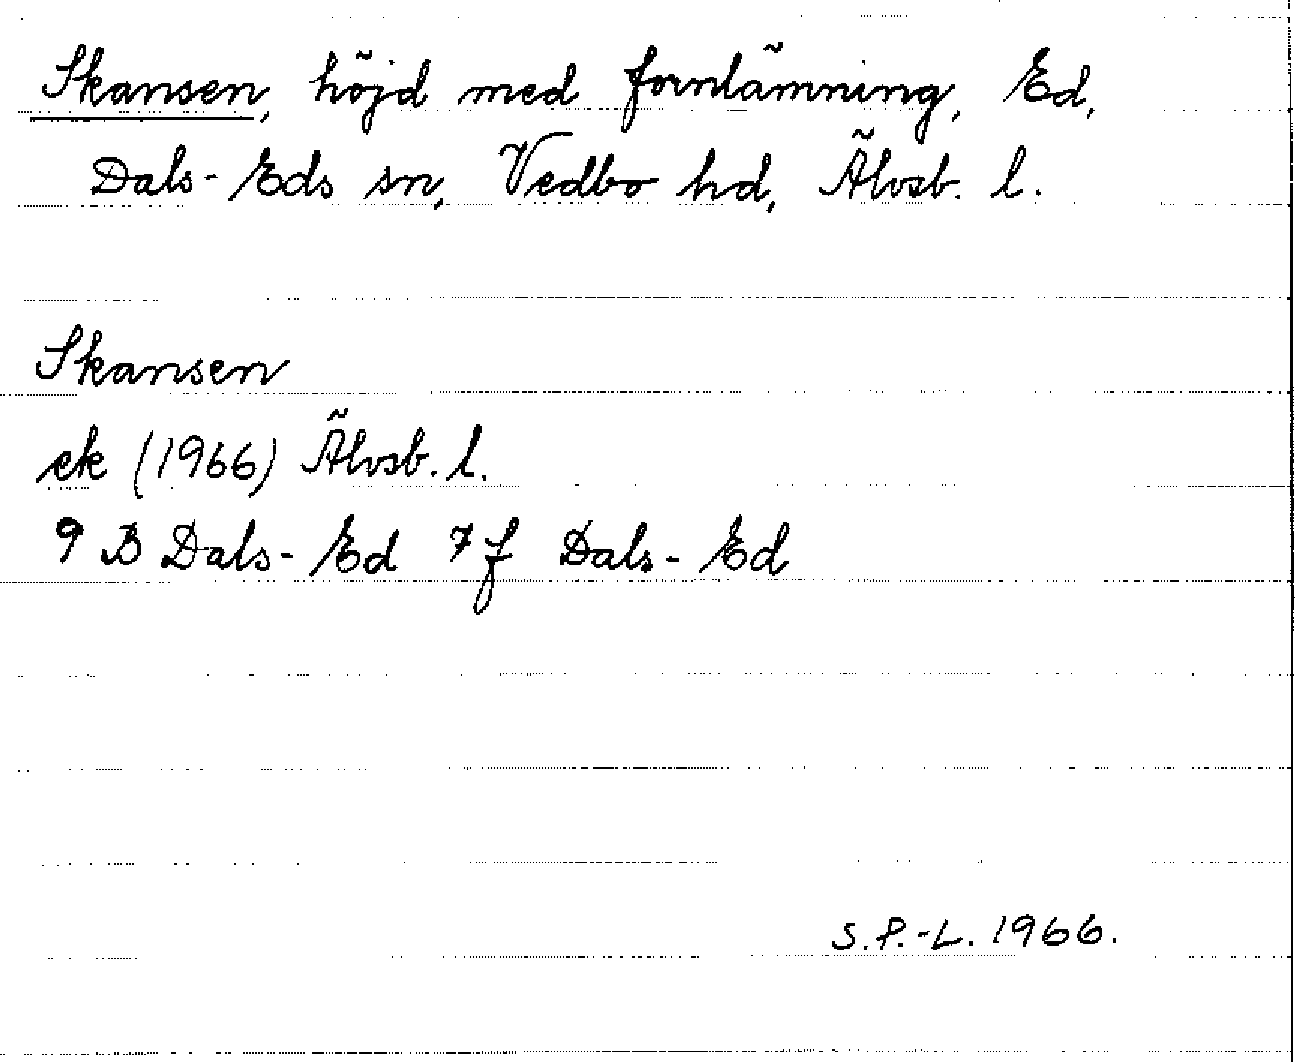 Skansen, höjd med fornlämning, Ed,
Dals-Eds sn, Vedbo hd, Älvsb. l.
Skansen
ek (1966) Älvsb. l.
9 B Dals-Ed 7 f Dals-Ed
S.P.-L. 1966.